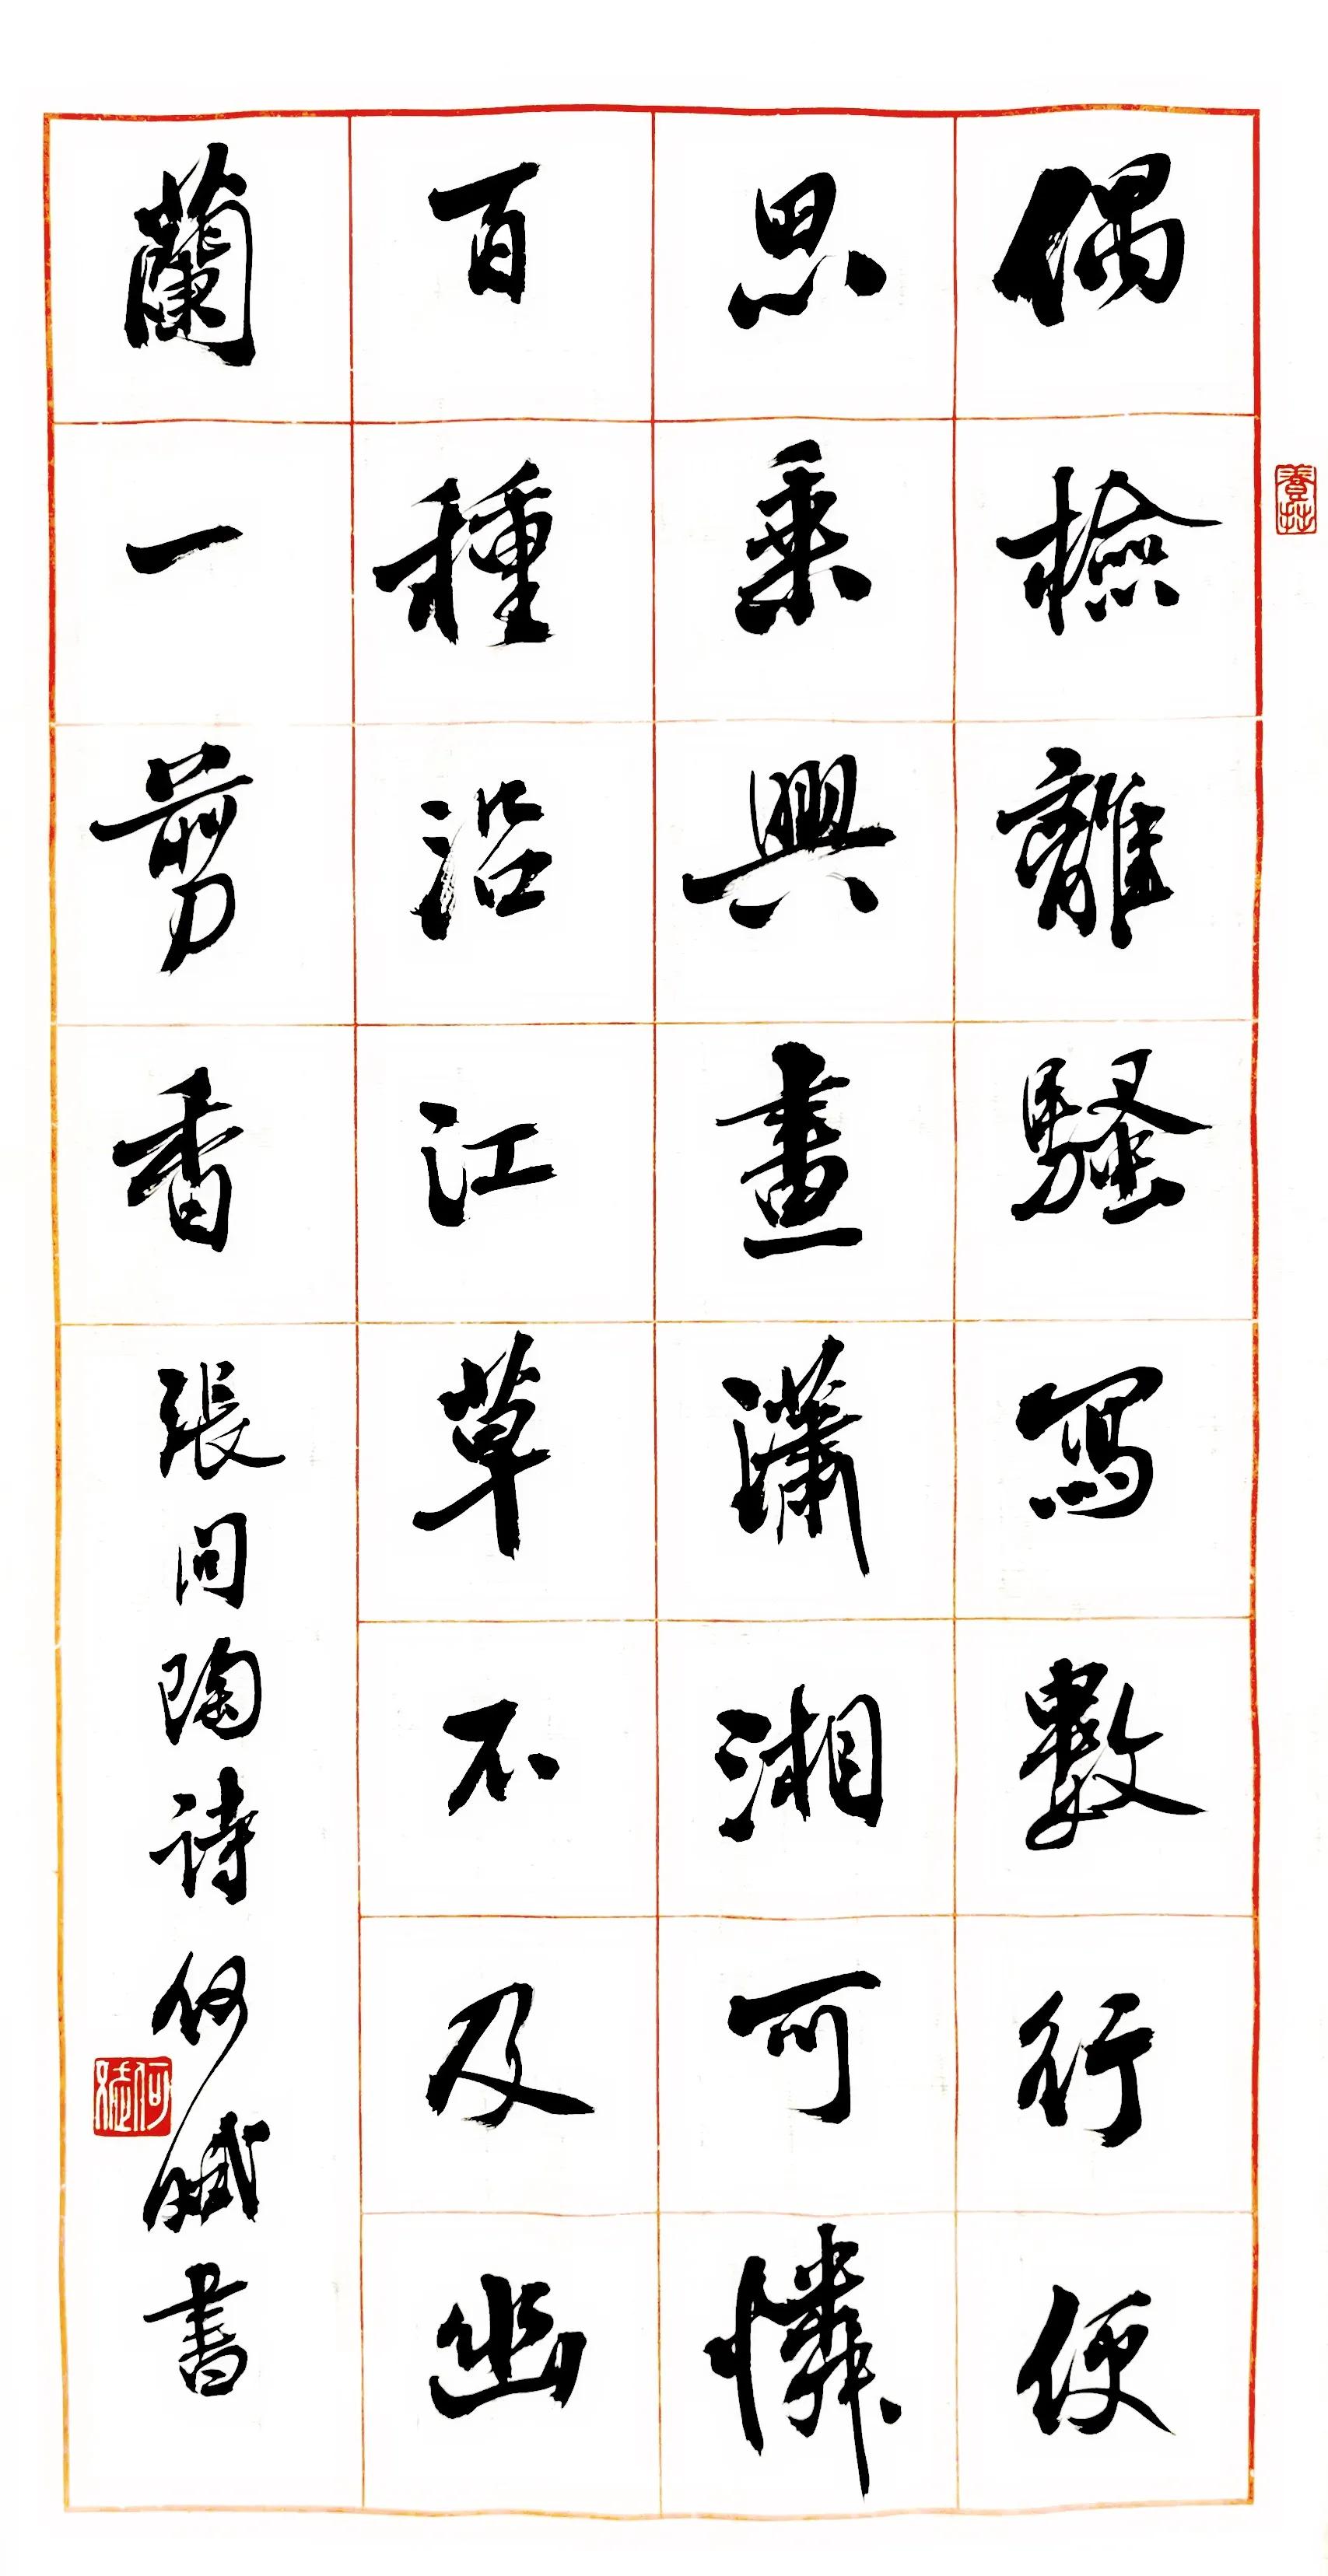 偶檢離騷寫數行便
思乘興畫瀟湘可憐
百種沿江草不及幽
蘭一剪香
張問陶詩何書
何